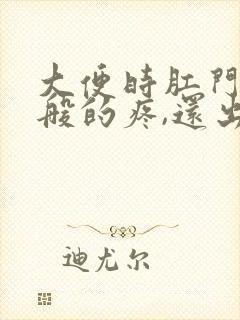 大便時肛門
般的疼,還出
迪尤尔